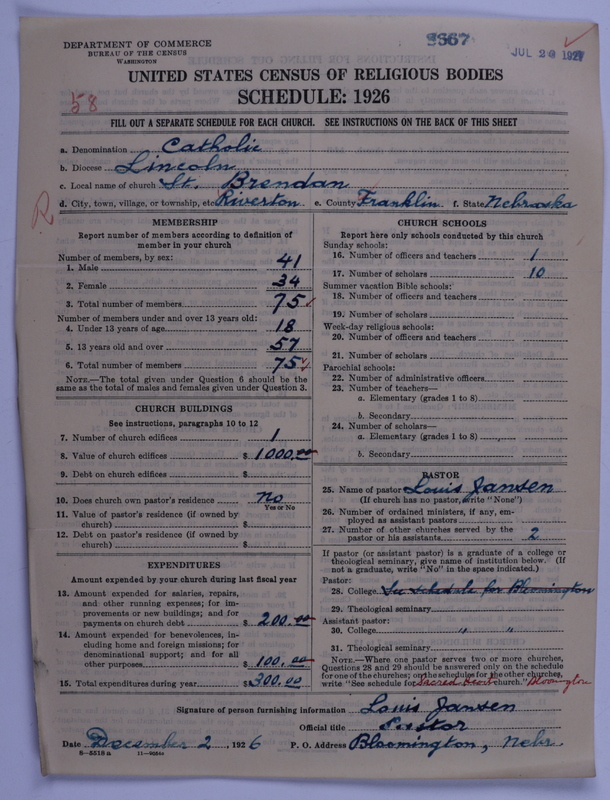 DEPARTMENT OF COMMERCE
BUREAU OF THE CENSUS
WASHINGTON
JUL 20 1927
58
UNITED STATES CENSUS OF RELIGIOUS BODIES
SCHEDULE: 1926
FILL OUT A SEPARATE SCHEDULE FOR EACH CHURCH. SEE INSTRUCTIONS ON THE BACK OF THIS SHEET
a. Denomination Catholic
b. Diocese Lincoln
c. Local name of church St. Brendan
d. City, town, village, or township, etc. Riverton e. County Franklin f. State Nebraska
MEMBERSHIP
Report number of members according to definition of
member in your church
Number of members, by sex:
1. Male 41
2. Female 34
3. Total number of members 75
Number of members under and over 13 years old:
4. Under 13 years of age 18
5. 13 years old and over 57
6. Total number of members 75
NOTE.—The total given under Question 6 should be the
same as the total of males and females given under Question 3.
CHURCH BUILDINGS
See instructions, paragraphs 10 to 12
7. Number of church edifices 1
8. Value of church edifices $ 1000.00
9. Debt on church edifices $
10. Does church own pastor's residence no
Yes or No
11. Value of pastor's residence (if owned by
church) $
12. Debt on pastor's residence (if owned by
church) $
EXPENDITURES
Amount expended by your church during last fiscal year
13. Amount expended for salaries, repairs,
and other running expenses; for im-
provements or new buildings; and for
payments on church debt $ 200.00
14. Amount expended for benevolences, in-
cluding home and foreign missions; for
denominational support; and for all
other purposes $ 100.00
15. Total expenditures during year $ 300.00
CHURCH SCHOOLS
Report here only schools conducted by this church
Sunday schools:
16. Number of officers and teachers 1
17. Number of scholars 10
Summer vacation Bible schools:
18. Number of officers and teachers
19. Number of scholars
Week-day religious schools:
20. Number of officers and teachers
21. Number of scholars
Parochial schools:
22. Number of administrative officers
23. Number of teachers—
a. Elementary (grades 1 to 8)
b. Secondary
24. Number of scholars—
a. Elementary (grades 1 to 8)
b. Secondary
PASTOR
25. Name of pastor Louis Jansen
(If church has no pastor, write "None")
26. Number of ordained ministers, if any, em-
ployed as assistant pastors
27. Number of other churches served by the
pastor or his assistants 2
If pastor (or assistant pastor) is a graduate of a college or
theological seminary, give name of institution below. (If
not a graduate, write "No" in the space indicated.)
Pastor:
28. College See schedule for Bloomington
29. Theological seminary
Assistant pastor:
30. College " "
31. Theological seminary
NOTE.—Where one pastor serves two or more churches,
Questions 28 and 29 should be answered only on the schedule
for one of the churches; on the schedules for the other churches,
write "See schedule for Sacred Heart church." Bloomington
Signature of person furnishing information Louis Jansen
Official title Pastor
Date December 2, 1926 P. O. Address Bloomington, Nebr.